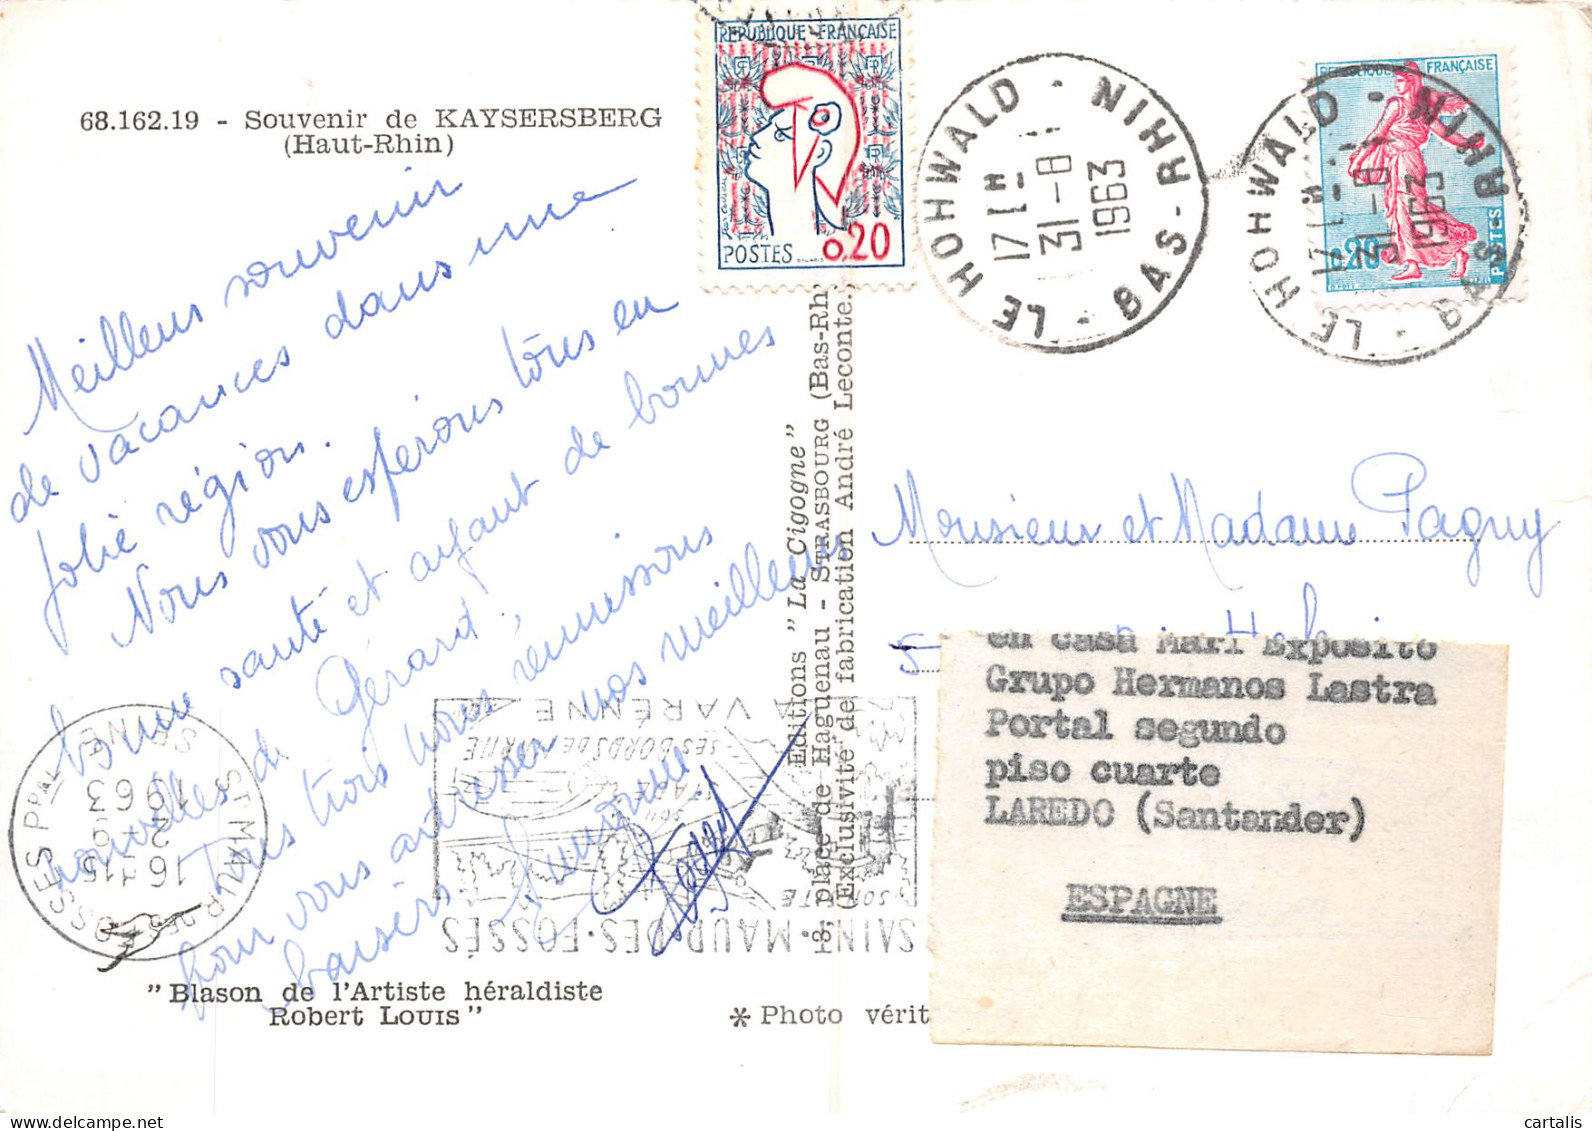 68.162.19 - Souvenir de KAYSERSBERG
(Haut-Rhin)
REPUBLIQUE FRANÇAISE
POSTES 0,20
LE HOHWALD - BAS-RHIN
17 H
31-8
1963
REPUBLIQUE FRANÇAISE
0,20
POSTES
LE HOHWALD - BAS-RHIN
17 H
31-8
1963
Meilleurs souvenir
de vacances dans une
jolie région.
Nous vous espérons tous en
bonne santé et ayant de bonnes
nouvelles de Gérard.
Tous trois nous réunissons
pour vous adresser nos meilleurs
baisers
"Blason de l'Artiste héraldiste
Robert LOUIS"
Editions "La Cigogne"
13, place de Haguenau - STRASBOURG (Bas-Rh
(Exclusivité de fabrication André Leconte.)
* Photo vérit
ST MAUR DES FOSSES PPAL
SEINE
16 H15
2-9
1963
SAINT-MAUR-DES-FOSSÉS
SON
SES BORDS DE MARNE
LA VARENNE
Monsieur et Madame Pagny
5
en casa Mari Exposito
Grupo Hermanos Lastra
Portal segundo
piso cuarte
LAREDO (Santander)
ESPAGNE
cartalis